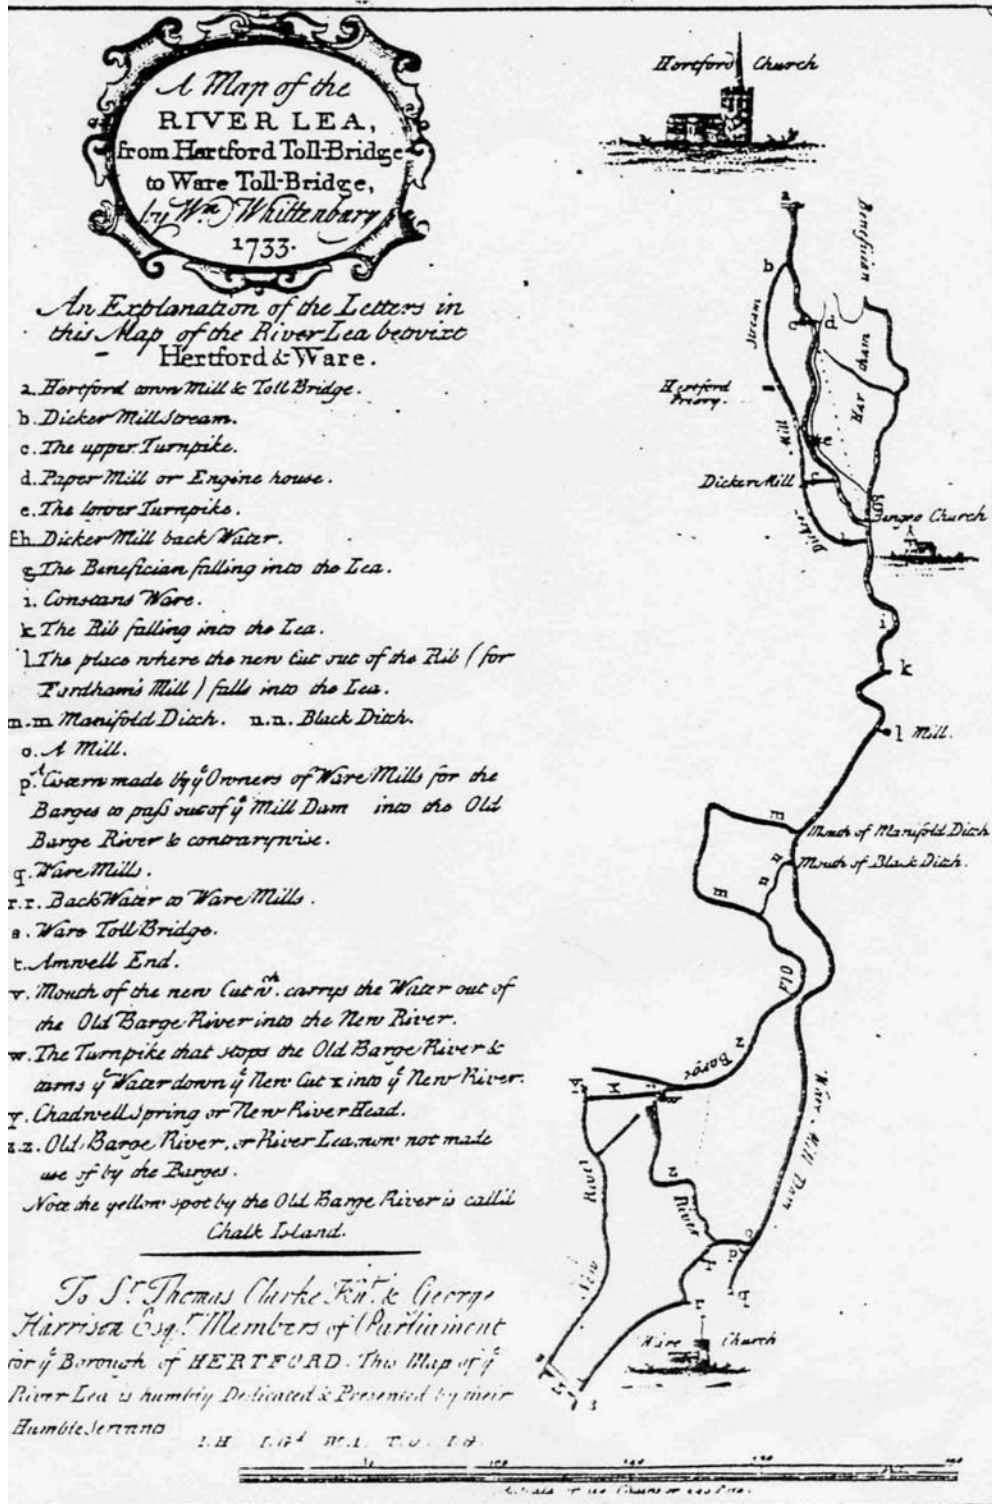 A Map of the
RIVER LEA,
from Hartford Toll-Bridge
to Ware Toll-Bridge,
by Wm. Whittenbury
1733.
An Explanation of the Letters in
this Map of the River Lea betwixt
Hertford & Ware.
a. Hertford town Mill & Toll Bridge.
b. Dicker Mill stream.
c. The upper Turnpike.
d. Paper Mill or Engine house.
e. The lower Turnpike.
f.h. Dicker Mill back Water.
g. The Benefician falling into the Lea.
i. Constans Ware.
k. The Rib falling into the Lea.
l. The place where the new Cut out of the Rib (for
Fordham's Mill) falls into the Lea.
m.m Manifold Ditch. n.n. Black Ditch.
o. A Mill.
p. A Cistern made by ye Owners of Ware Mills for the
Barges to pass out of ye Mill Dam into the Old
Barge River & contrarywise.
q. Ware Mills.
r.r. Back Water to Ware Mills.
s. Ware Toll Bridge.
t. Amwell End.
v. Mouth of the new Cut wch. carrys the Water out of
the Old Barge River into the New River.
w. The Turnpike that stops the Old Barge River &
turns ye Water down ye New Cut x into ye New River.
y. Chadwell Spring or New River Head.
z.z. Old Barge River, or River Lea, now not made
use of by the Barges.
Note the yellow spot by the Old Barge River is call'd
Chalk Island.
To Sr. Thomas Clarke Knt. & George
Harrison Esqr. Members of Parliament
for ye Borough of HERTFORD. This Map of ye
River Lea is humbly Dedicated & Presented by their
Humble Servants
Hertford Church
a
b
c
d
Benefician
Stream
Har
cham
Hertford
Priory.
Mill
e
Dicker Mill
f
g
Bengeo Church
Dicker
h
i
k
l Mill.
m
Mouth of Manifold Ditch
n
Mouth of Black Ditch.
n
m
Old
z
Barge
Ware Mill Dam
y
x
w
River
z
River
New
o
p
r
q
r
Ware Church
t
s